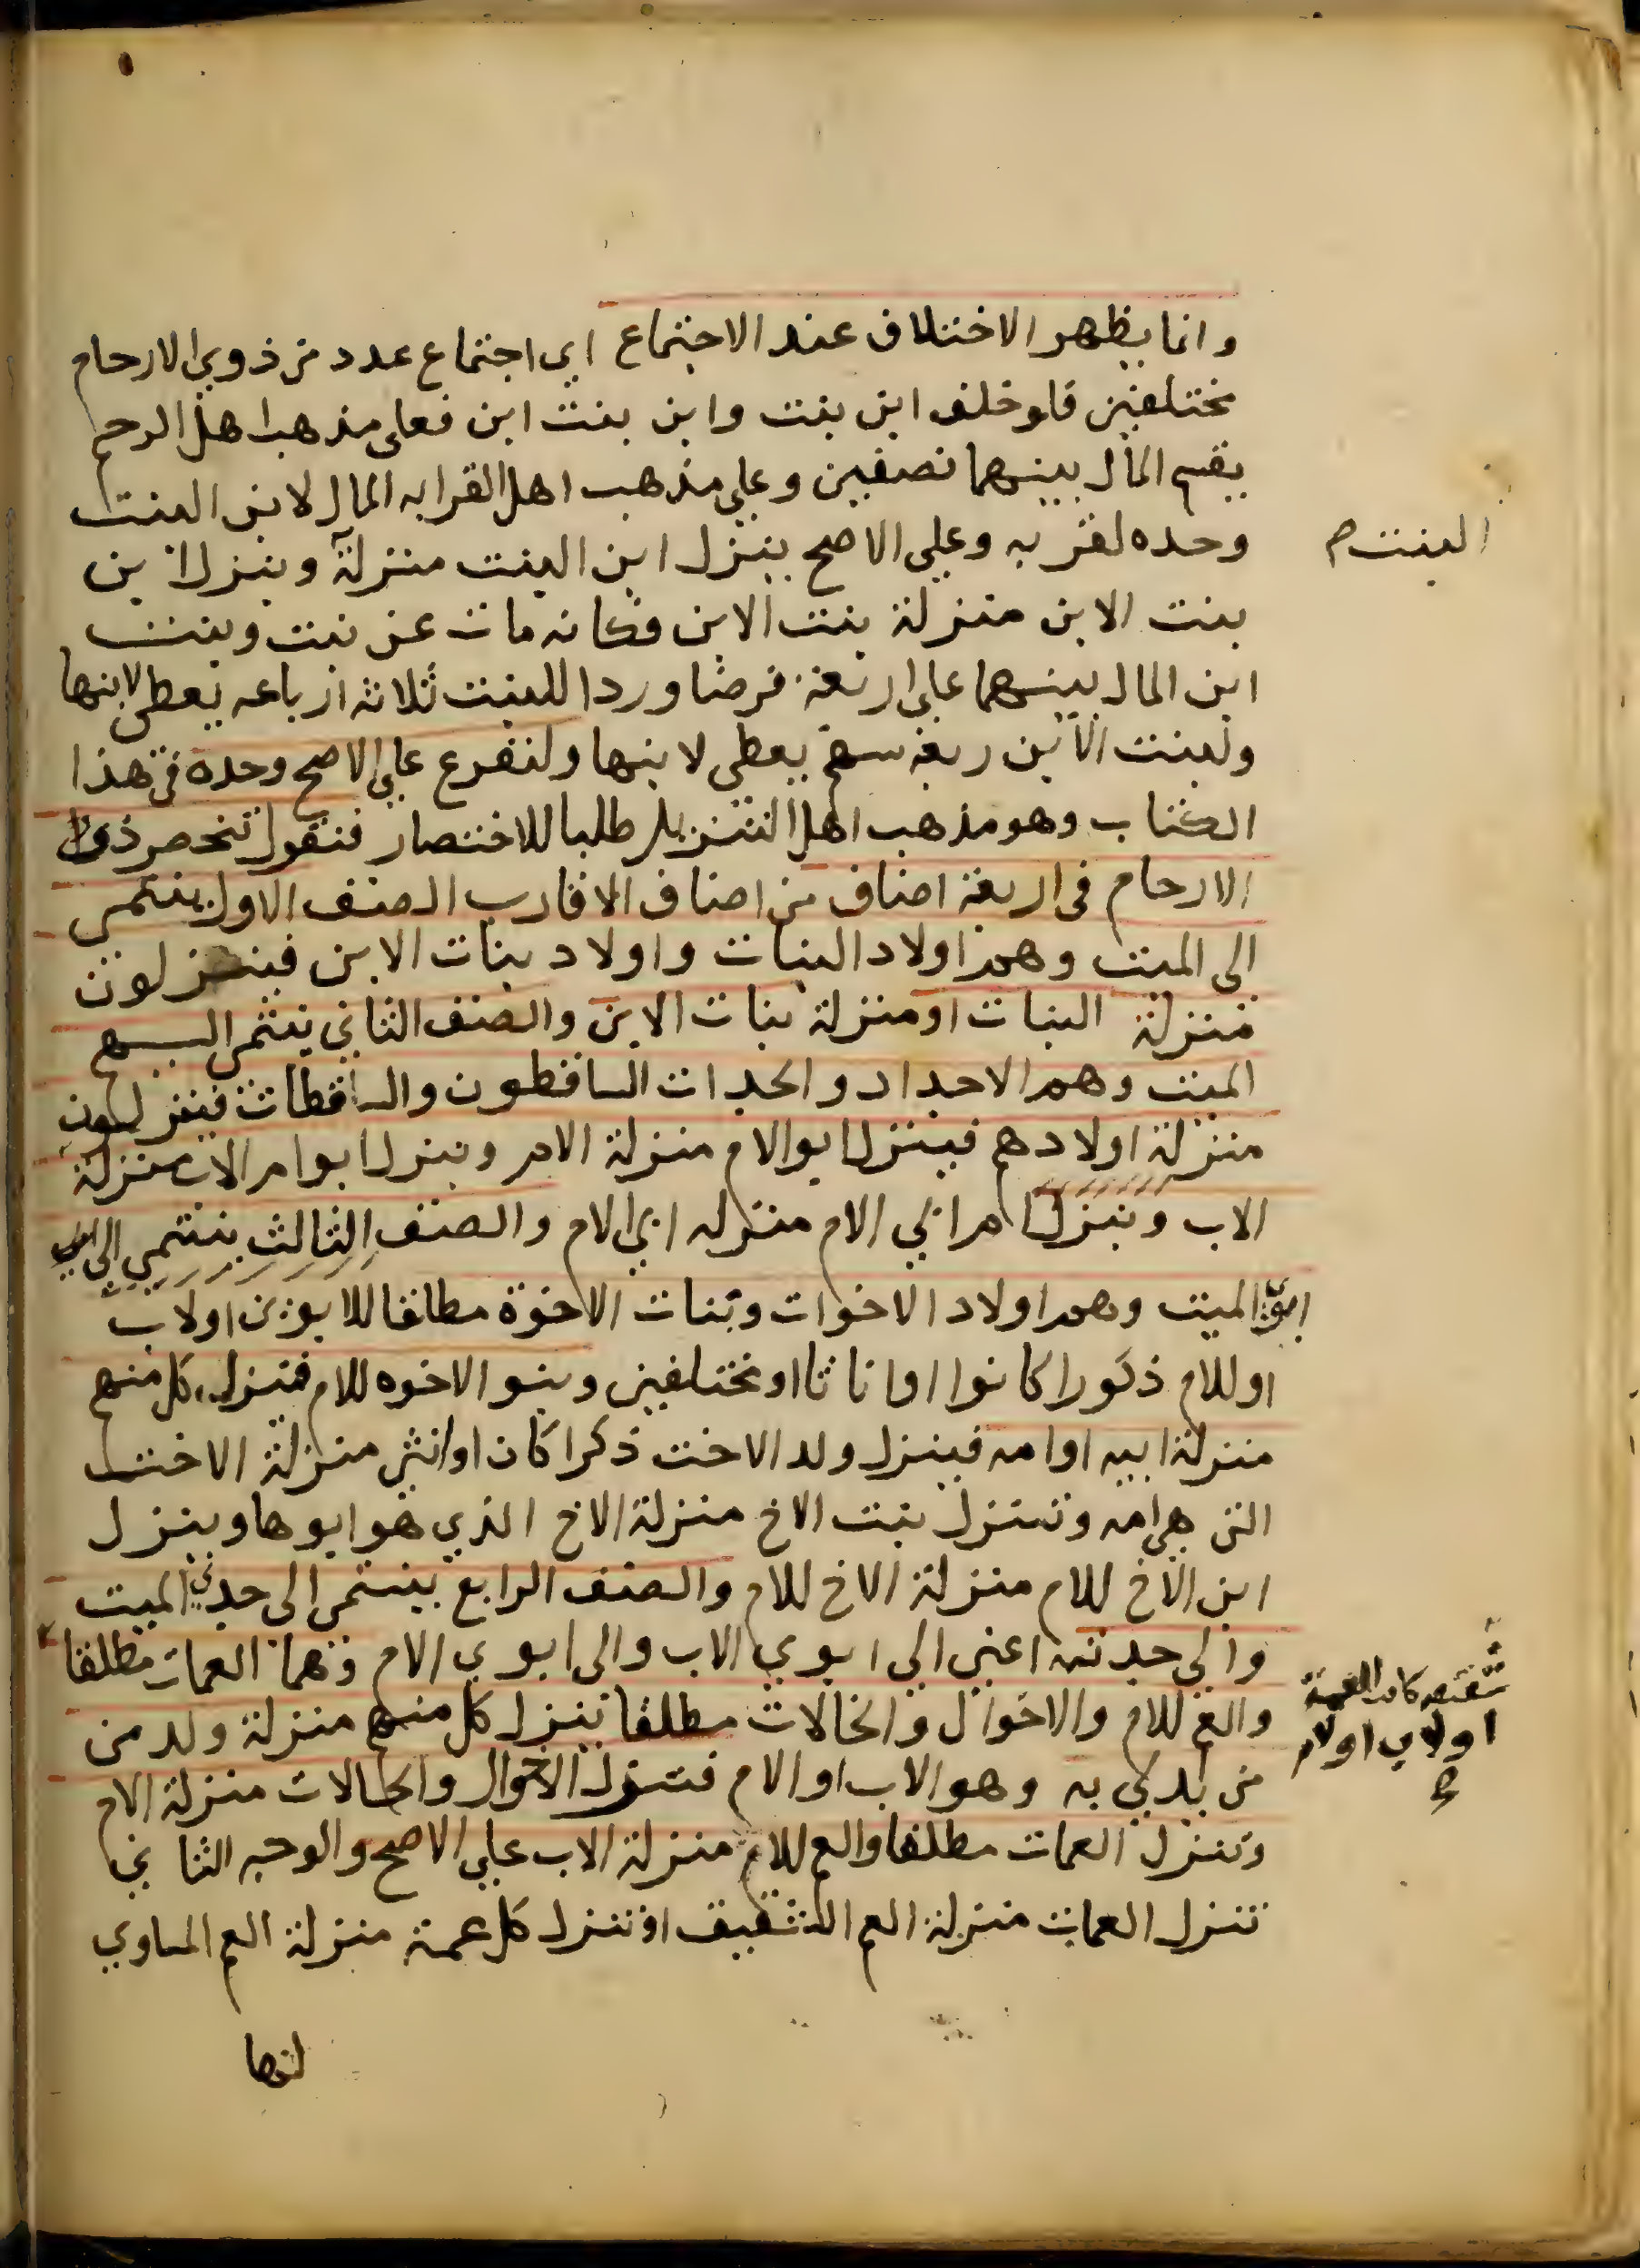 وانما يظهر الاختلاف عند الاجتماع اي اجتماع عدد من ذوي الارحام
مختلفين فلو خلف ابن بنت وابن بنت ابن فعلى مذهب اهل الرحم
يقسم المال بينهما نصفين وعلي مذهب اهل القرابه المال لابن البنت
وحده لقربه وعلى الاصح ينزل ابن البنت منزلة وينزل ابن
البنت صح
بنت الابن منزلة بنت الابن فكانه مات عن بنت وبنت
ابن المال بينهما على اربعة فرضا وردا للبنت ثلاثة ارباعه يعطى لابنها
ولبنت الابن ربعه سهم يعطى لابنها ولنفرع على الاصح وحده في هذا
الكتاب وهو مذهب اهل التنزيل طلبا للاختصار فنقول تنحصر ذووا
الارحام في اربعة اصناف من اصناف الاقارب الصنف الاول ينتمي
الى الميت وهم اولاد البنات واولاد بنات الابن فينزلون
منزلة البنات او منزلة بنات الابن والصنف الثاني ينتمى اليهم
الميت وهم الاجداد والجدات الساقطون والساقطات فينزلون
منزلة اولادهم فينزل ابو الام منزلة الام وينزل ابو ام الاب منزلة
الاب وينزل ام ابي الام منزله ابي الام والصنف الثالث ينتمي الى
ابوي الميت وهم اولاد الاخوات وبنات الاخوة مطلقا للابوين اولاب
اوللام ذكورا كانوا او اناثا او مختلفين وبنو الاخوه للام فينزل كل منهم
منزلة ابيه او امه فينزل ولد الاخت ذكرا كان او انثى منزلة الاخت
التى هي امه وتنزل بنت الاخ منزلة الاخ الذي هو ابوها وينزل
ابن الاخ للام منزلة الاخ للام والصنف الرابع ينتمى الى جدي الميت
والي جدتيه اعني الي ابوي الاب والى ابوي الام وهما العمات مطلقا
شقيقه كانت العمة
اولاب اولام
صح
والعم للام والاخوال والخالات مطلقا ينزل كل منهم منزلة ولد من
من يدلي به وهو الاب او الام فتنزل الاخوال والخالات منزلة الام
وتنزل العمات مطلقا والعم للام منزلة الاب علي الاصح والوجه الثاني
تنزل العمات منزلة العم الشقيق او تنزل كل عمة منزلة العم المساوي
لها